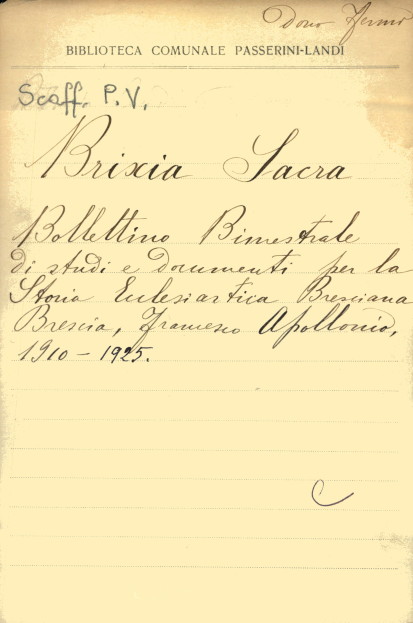 Dono Fermi
BIBLIOTECA COMUNALE PASSERINI-LANDI
Scaff. P. V.
Brixia Sacra
Bollettino Bimestrale
di studi e documenti per la
Storia Ecclesiastica Bresciana
Brescia, Francesco Apollonio,
1910 - 1925.
C